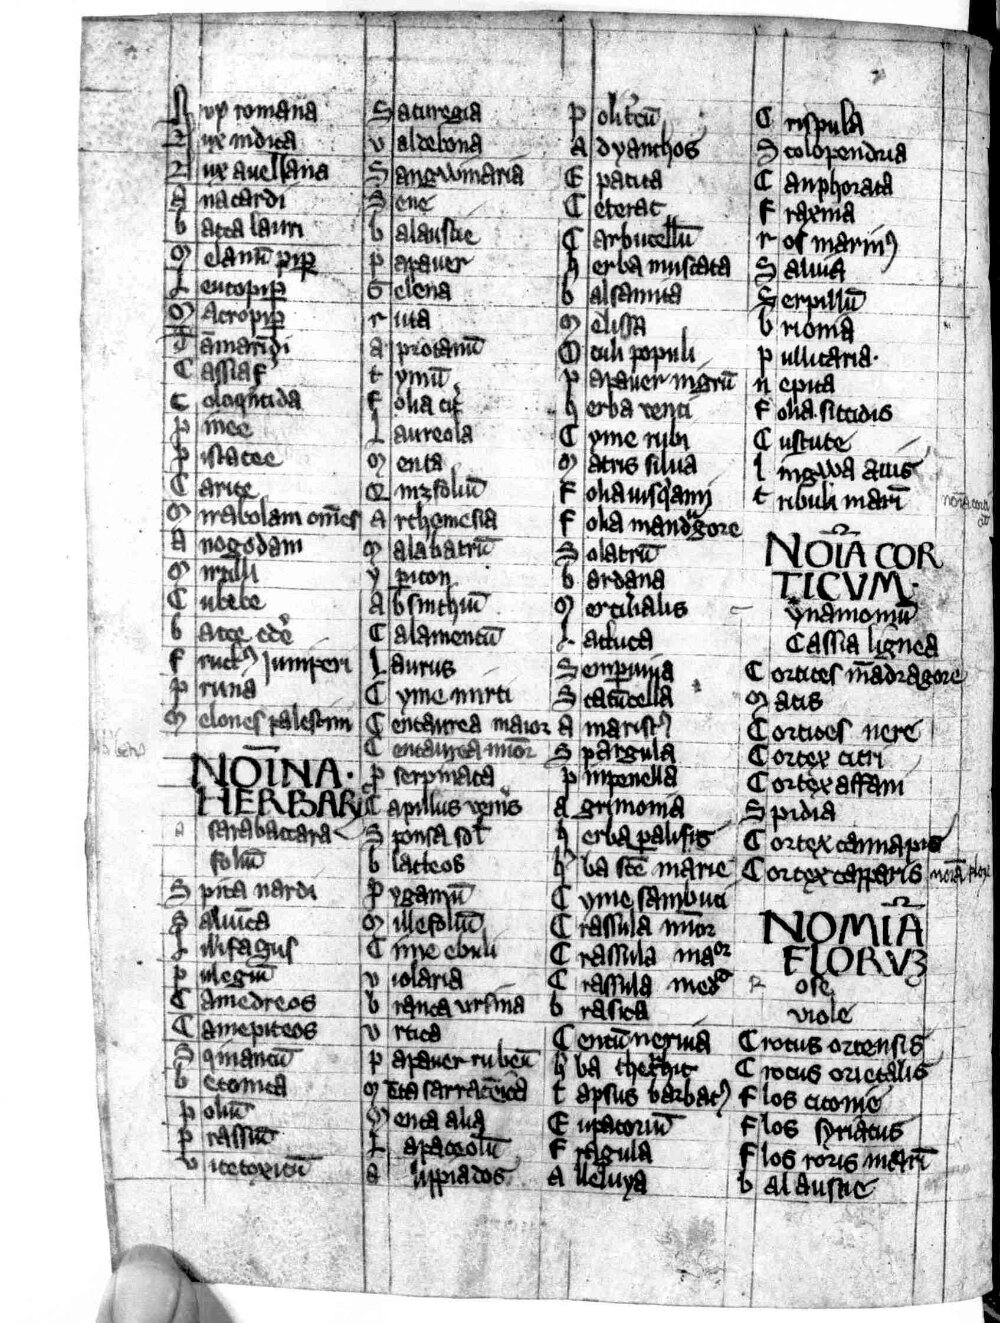 Nux romana
Nux indica
Nux auellana
Anacardi
bacca lauri
Melanū pip̄
Leucopip̄
Macropip̄
Tāmarīdi
Cassia f
Coloq̄ntida
pinee
pistacee
Carice
Mirabolam om̄es
Anogodam
Mirtilli
Cubebe
bacce edē
fructꝰ Juniperi
pruna
Melones palestini
NOĪNA·
HERBAR
Asarabaccara
foliū
Spica nardi
Saluica
Lilifagus
pulegiū
Camedreos
Camepiteos
Sq̇nantū
betonica
poliū
prassiū
vicetoxicū
Saturegia
valdebona
Sangwinaria
Sene
balaustie
papauer
Gelena
ruta
aprotanū
tymū
folia cip̄
Laureola
Menta
Arthemesia
Malabatrū
ypicon
Absinthiū
Calamentū
Laurus
Cyme mirti
Centaurea maior
Centaurea minor
pserpinata
Capillus ven̄is
Sponsa sol
blacteos
pyganū
Millefoliū
Cime ebuli
violaria
branca vrsina
vrtica
papauer rubeū
Mēta sarracēica
Menta alia
Lapaceolū
alippiados
Politcū
Adyanthos
Epatica
Ceterac
Carbucellū
herba muscata
balsamita
Melissa
Oculi populi
papauer nigrū
herba venti
Cyme rubi
Matris silua
Folia iusq̇ami
folia mandragore
Solatrū
bardana
Mercurialis
Lactuca
Semp̄uiua
Scatūcella
amariscꝰ
Spargula
pinpenella
agrimonia
herba palisis
hba scē marie
Cyme sambuci
Crassula minor
Crassula maor
Crassula med
brasica
Centū neruia
tapsus barbatꝰ
Eupatoriū
Fragula
Alleluya
Crispula
Scolopendria
Canphorata
fraxina
ros marinꝰ
Saluia
Serpillū
brionia
pullicaria·
nepita
Folia siccidis
Cuscute
lingwa auis
tribuli marī
NOĪA COR
TICVM·
ynamomū
Cassia lignea
Cortices mādragore
Macis
Cortices nere
Cortex citri
Cortex affani
Spidia
Cortex cannapis
Cortex capparis
NOMIA
FLORVꝪ
Rose
viole
Crocus ortensis
Crocus oriētalis
Flos citonie
Flos syriacus
Flos roris marī
balaustie